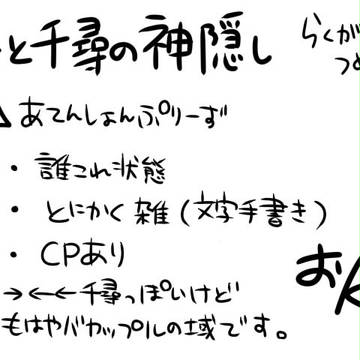 と千尋の神隠し
らくが
つめ
⚠あてんしょんぷりーず
・誰これ状態
・とにかく雑(文字手書き)
・CPあり
→→←←千尋っぽいけど
もはやバカップルの域です。
お